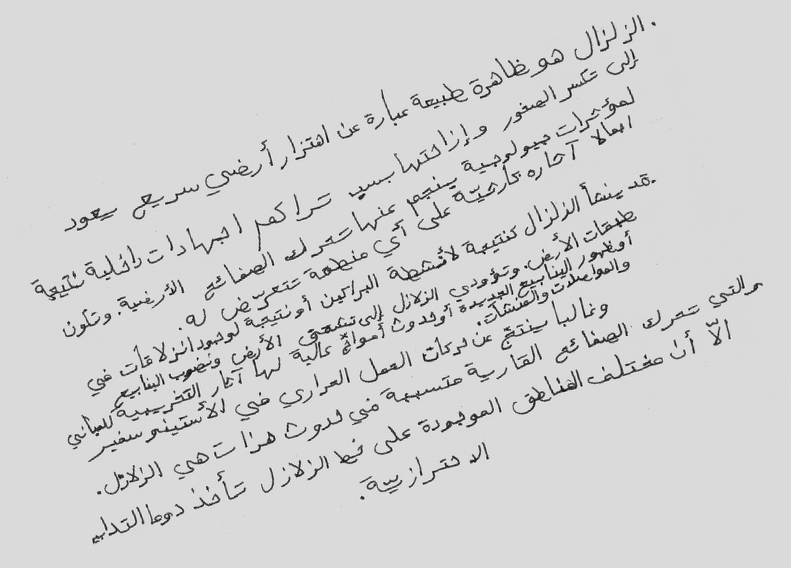 . الزلزال هو ظاهرة طبيعة عبارة عن اهتزاز أرضي سريع يعود
إلى تكسر الصخور وإزاحتها بسبب تراكم اجهادات داخلية نتيجة
لمؤثرات جيولوجية ينجم عنها تحرك الصفائح الأرضية. وتكون
آثاره كارثيّة على أي منطقة تتعرّض له.
. قد ينشأ الزلزال كنتيجة لأنشطة البراكين أو نتيجة لوجود انزلاقات في
طبقات الأرض. وتؤودي الزلازل إلى تشقق الأرض ونضوب الينابيع
أو ظهور الينابيع الجديدة أو حدوث أمواج عالية لها آثار التخريبية للمباني
والمواصلات والمنشآت.
وغالبا ينتج عن حركات الحمل الحراري في الأستينوسفير
والتي تحرك الصفائح القارية متسببة في حدوث هزات هي الزلازل.
الاّ أن مختلف المناطق الموجودة على خط الزلازل تأخذ دوما التدابير
الاحترازيية.